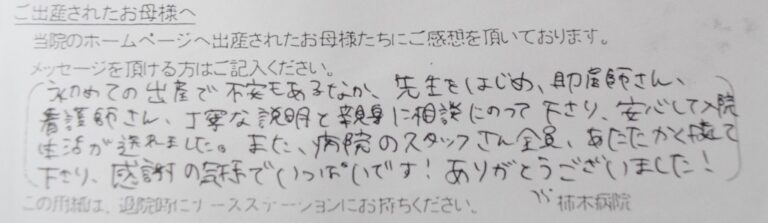 ご出産されたお母様へ
当院のホームページへ出産されたお母様たちにご感想を頂いております。
メッセージを頂ける方はご記入ください。
初めての出産で不安もあるなか、先生をはじめ、助産師さん、
看護師さん、丁寧な説明と親身に相談にのって下さり、安心して入院
生活が送れました。また、病院のスタッフさん全員、あたたかく接して
下さり、感謝の気持でいっぱいです！ありがとうございました！
この用紙は、退院時にナースステーションにお持ちください。 柿木病院